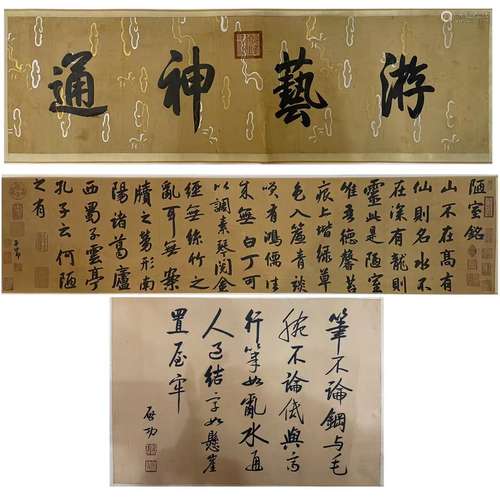 游藝神通
陋室銘
山不在高有
仙則名水不
在深有龍則
靈此是陋室
惟吾德馨苔
痕上堦綠草
色入簾青談
笑有鴻儒往
來無白丁可
以調素琴閱金
經無絲竹之
亂耳無案
牘之勞形南
陽諸葛廬
西蜀子雲亭
孔子云何陋
之有
子昂
筆不論鋼与毛
腕不論低與高
行筆如亂水通
人過結字如懸崖
置屋牢
啟功